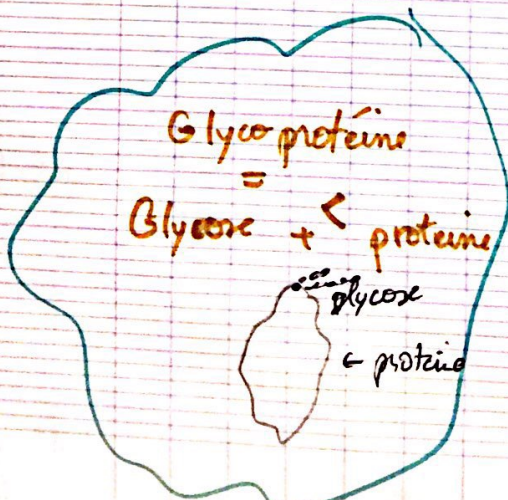 Glycoprotéine
=
Glycose + < proteine
glycose
← proteine